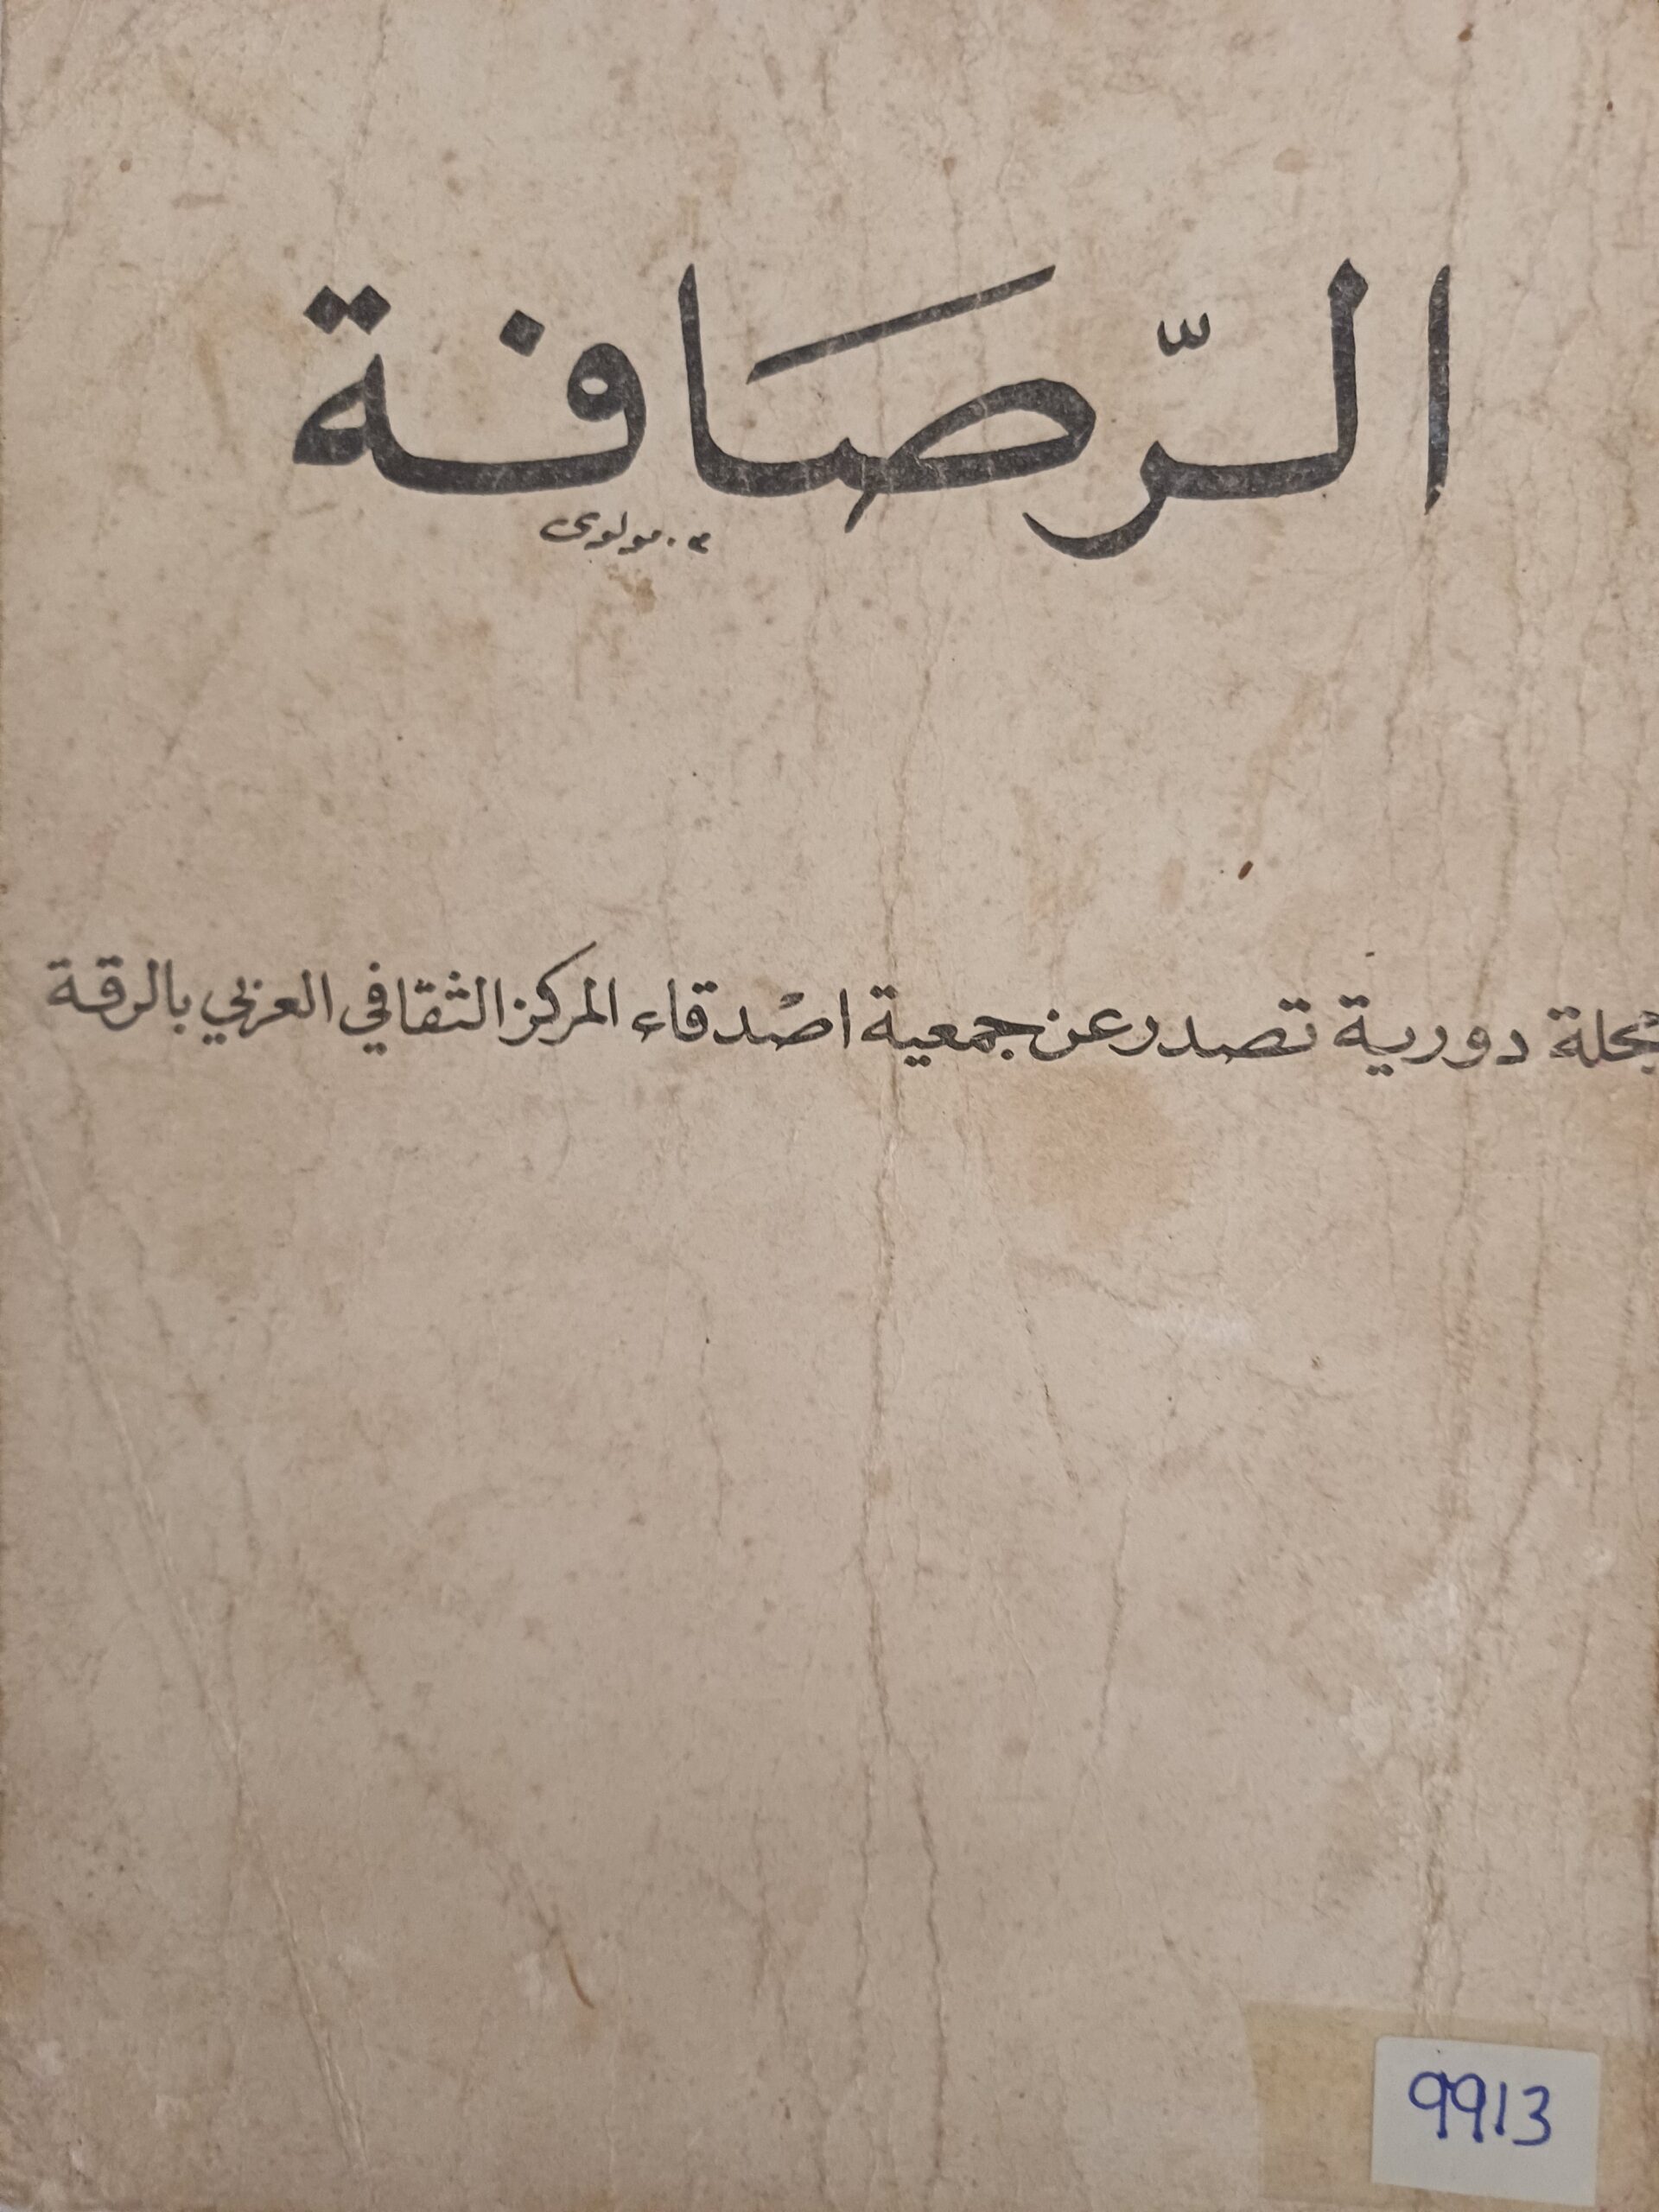 الرّصَافة
م. مولوى
مجلة دورية تصدر عن جمعية اصْدقاء المركز الثقافي العربي بالرقة
9913